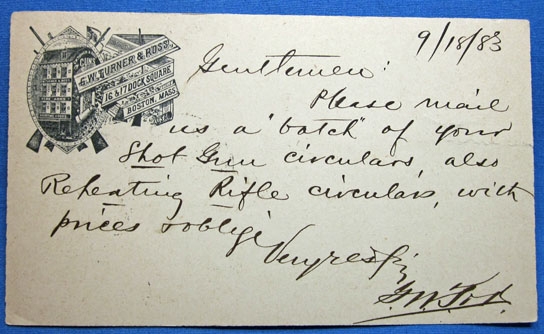 GUNS
G.W. TURNER & ROSS
16 & 17 DOCK SQUARE
BOSTON, MASS.
9/18/83
Gentlemen:
Please mail
us a "batch" of your
Shot Gun circulars, also
Repeating Rifle circulars, with
prices & oblige
Very resp'y